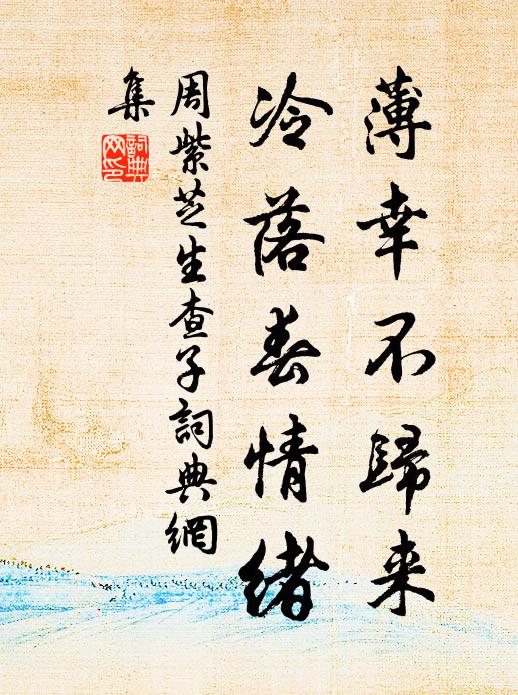 薄幸不歸来
冷落春情緒
周紫芝生查子詞典網
集
詞典
网印